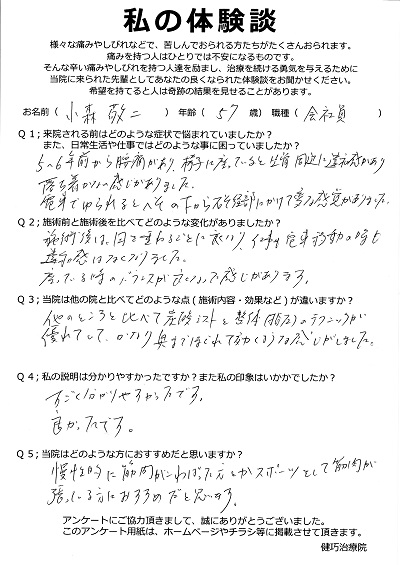 私の体験談
様々な痛みやしびれなどで、苦しんでおられる方たちがたくさんおられます。
痛みを持つ人はひとりでは不安になるものです。
そんな辛い痛みやしびれを持つ人達を励まし、治療を続ける勇気を与えるために
当院に来られた先輩としてあなたの良くなられた体験談をお聞かせください。
希望を持てると人は奇跡の結果を見せることがあります。
お名前（ 小森 敬二 ）年齢（ 57 歳）職種（ 会社員 ）
Q１；来院される前はどのような症状で悩まれていましたか？
また、日常生活や仕事ではどのような事に困っていましたか？
5〜6年前から腰痛があり、椅子に座っていると坐骨周辺に違和感があり
落ち着かない感じがありました。
電車でゆられるとへその下から
感覚がありました。
Q２；施術前と施術後を比べてどのような変化がありましたか？
施術後は、回を重ねるごとに良くなり、仕事や電車移動の時も
違和感はなくなりました。
座っている時のバランスが良くなった感じがあります。
Q３；当院は他の院と比べてどのような点(施術内容・効果など)が違いますか？
他のところと比べて
整体(指圧)のテクニックが
優れてして、かなり奥までほぐれて
感じがしました。
Q４；私の説明は分かりやすかったですか？また私の印象はいかかでしたか？
すごく分かりやすかったです。
良かったです。
Q５；当院はどのような方におすすめだと思いますか？
慢性的に筋肉がこわばった方とかスポーツをして筋肉が
張っている方におすすめだと思います。
アンケートにご協力頂きまして、誠にありがとうございました。
このアンケート用紙は、ホームページやチラシ等に掲載させて頂きます。
健巧治療院